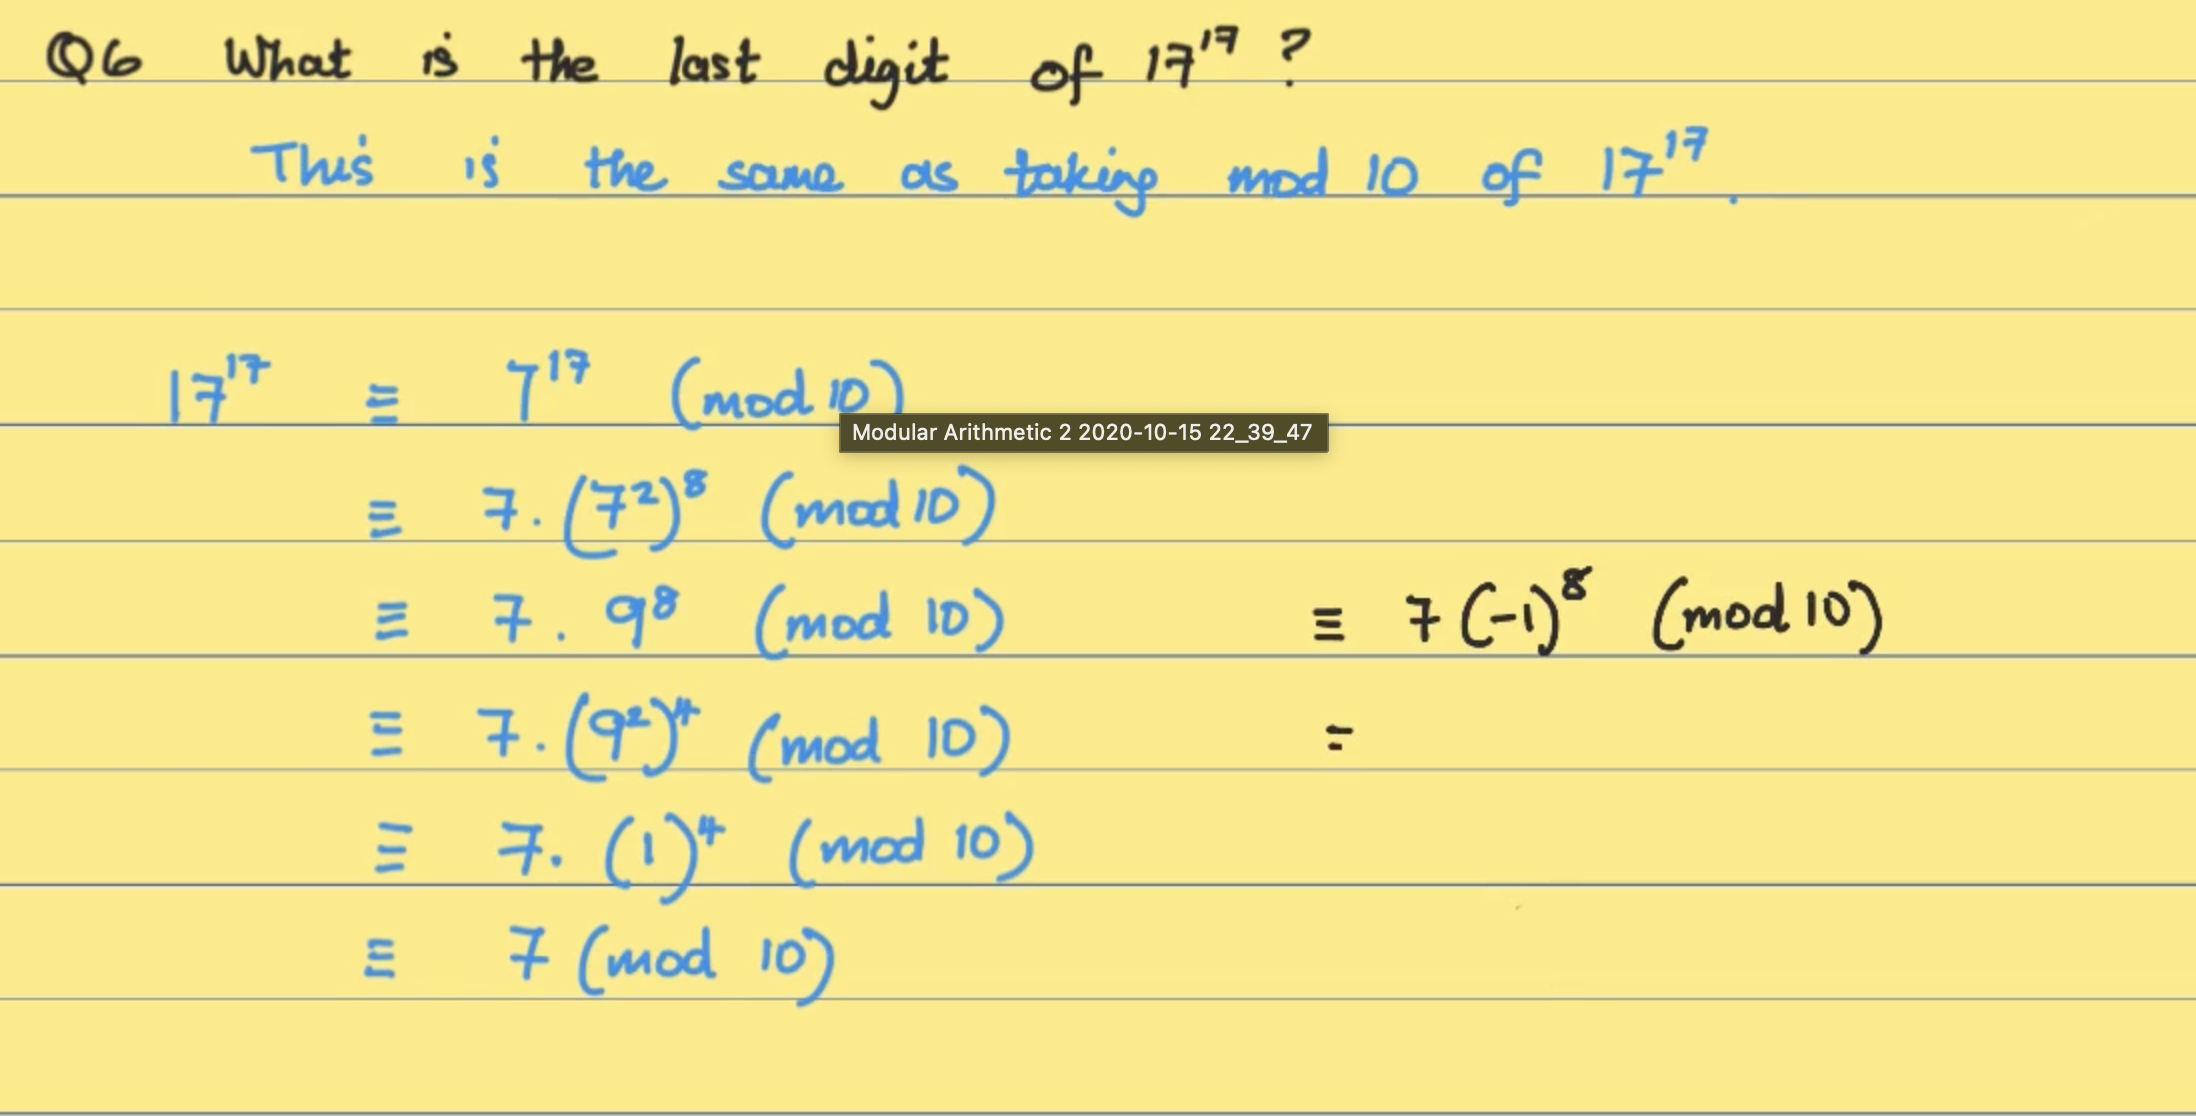 Q6 What is the last digit of 17¹⁷ ?
This is the same as taking mod 10 of 17¹⁷.
17¹⁷ ≡ 7¹⁷ (mod 10)
Modular Arithmetic 2 2020-10-15 22_39_47
≡ 7.(7²)⁸ (mod 10)
≡ 7. 9⁸ (mod 10) ≡ 7(-1)⁸ (mod 10)
≡ 7.(9²)⁴ (mod 10) =
≡ 7. (1)⁴ (mod 10)
≡ 7 (mod 10)